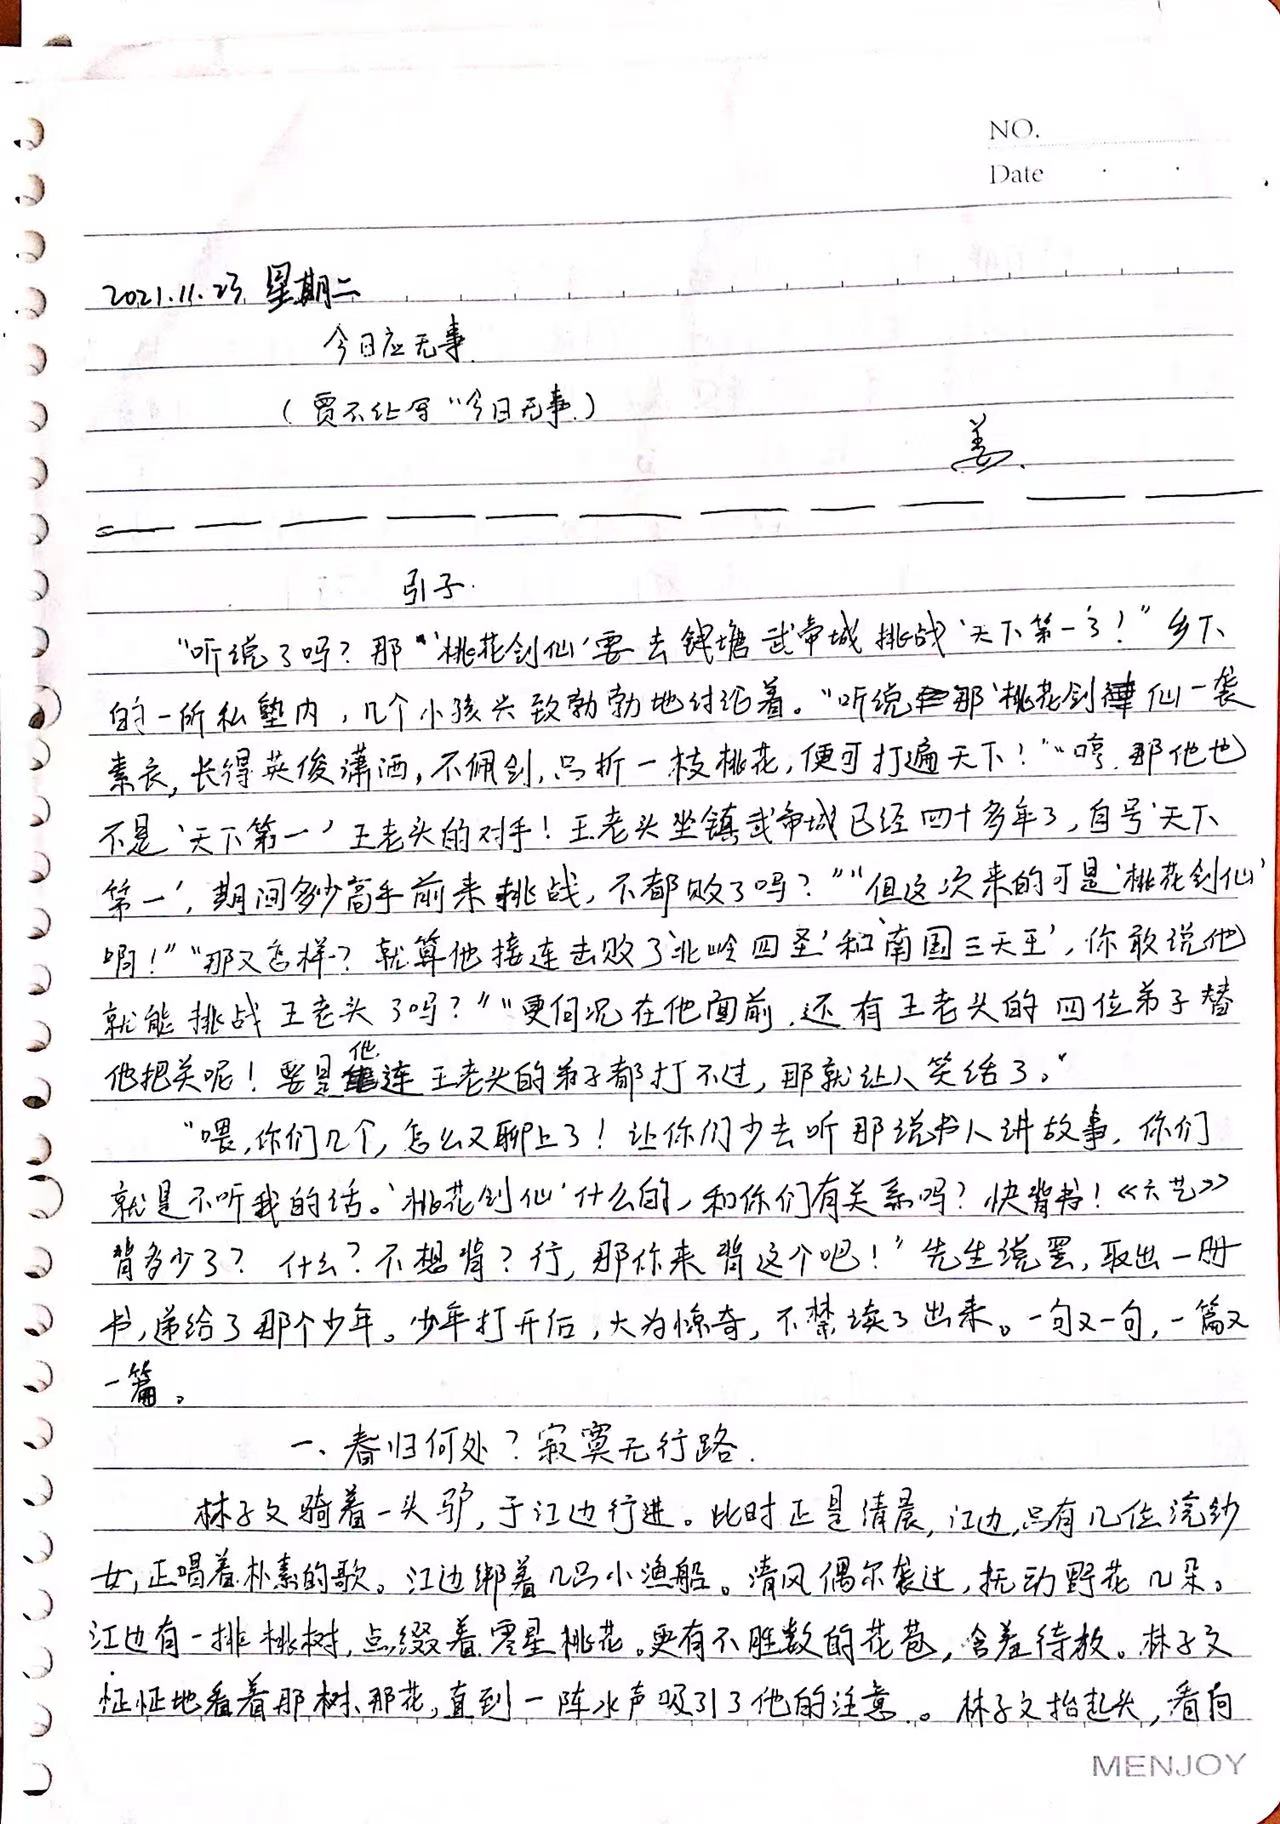 NO.
Date
2021.11.23 星期二
今日应无事.
(贾不让写“今日无事.)
姜.
引子.
“听说了吗？那‘桃花剑仙’要去钱塘武帝城挑战‘天下第一’了！”乡下
的一所私塾内，几个小孩兴致勃勃地讨论着。“听说那‘桃花剑仙一袭
素衣，长得英俊潇洒，不佩剑，只折一枝桃花，便可打遍天下！”“哼，那他也
不是‘天下第一’王老头的对手！王老头坐镇武帝城已经四十多年了，自号‘天下
第一’，期间多少高手前来挑战，不都败了吗？”“但这次来的可是‘桃花剑仙’
啊！”“那又怎样？就算他接连击败了‘北岭四圣’和‘南国三天王’，你敢说他
就能挑战王老头了吗？”“更何况在他面前，还有王老头的四位弟子替
他把关呢！要是他连王老头的弟子都打不过，那就让人笑话了。”
“喂，你们几个，怎么又聊上了！让你们少去听那说书人讲故事，你们
就是不听我的话。‘桃花剑仙’什么的，和你们有关系吗？快背书！《六艺》
背多少了？什么？不想背？行，那你来背这个吧！”先生说罢，取出一册
书，递给了那个少年。少年打开后，大为惊奇，不禁读了出来。一句又一句，一篇又
一篇。
一、春归何处？寂寞无行路.
林子文骑着一头驴，于江边行进。此时正是清晨，江边，只有几位浣纱
女，正唱着朴素的歌。江边绑着几只小渔船。清风偶尔袭过，抚动野花几朵。
江边有一排桃树，点缀着零星桃花。更有不胜数的花苞，含羞待放。林子文
怔怔地看着那树、那花，直到一阵水声吸引了他的注意。林子文抬起头，看向
MENJOY